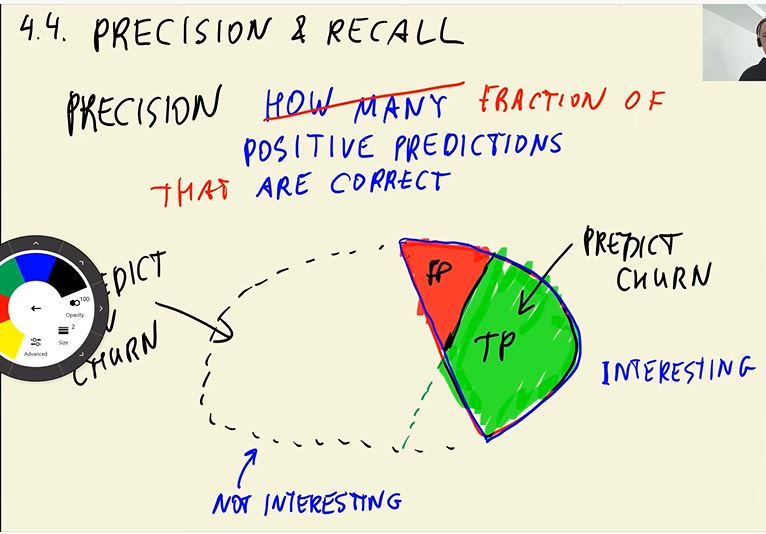 4.4. PRECISION & RECALL
PRECISION HOW MANY FRACTION OF
POSITIVE PREDICTIONS
THAT ARE CORRECT
FP
TP
PREDICT
CHURN
EDICT
CHURN
INTERESTING
NOT INTERESTING
100
Opacity
2
Size
Advanced